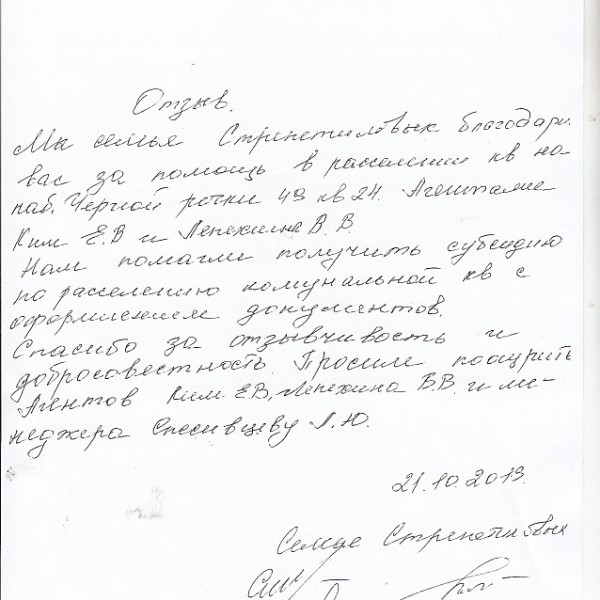 Отзыв.
Мы семья Стрепетиловых благодарим
вас за помощь в расселении кв на
наб. Черной речки 49 кв 24. Агентами
Ким Е.В и Лепехина В.В.
Нам помагли получить субсидию
по расселению комунальной кв с
оформлением документов.
Спасибо за отзывчивость и
добросовестность. Просим поащрить
Агентов Ким Е.В, Лепехина В.В. и ме-
неджера Спесивцеву Л.Ю.
21.10.2013.
Семья